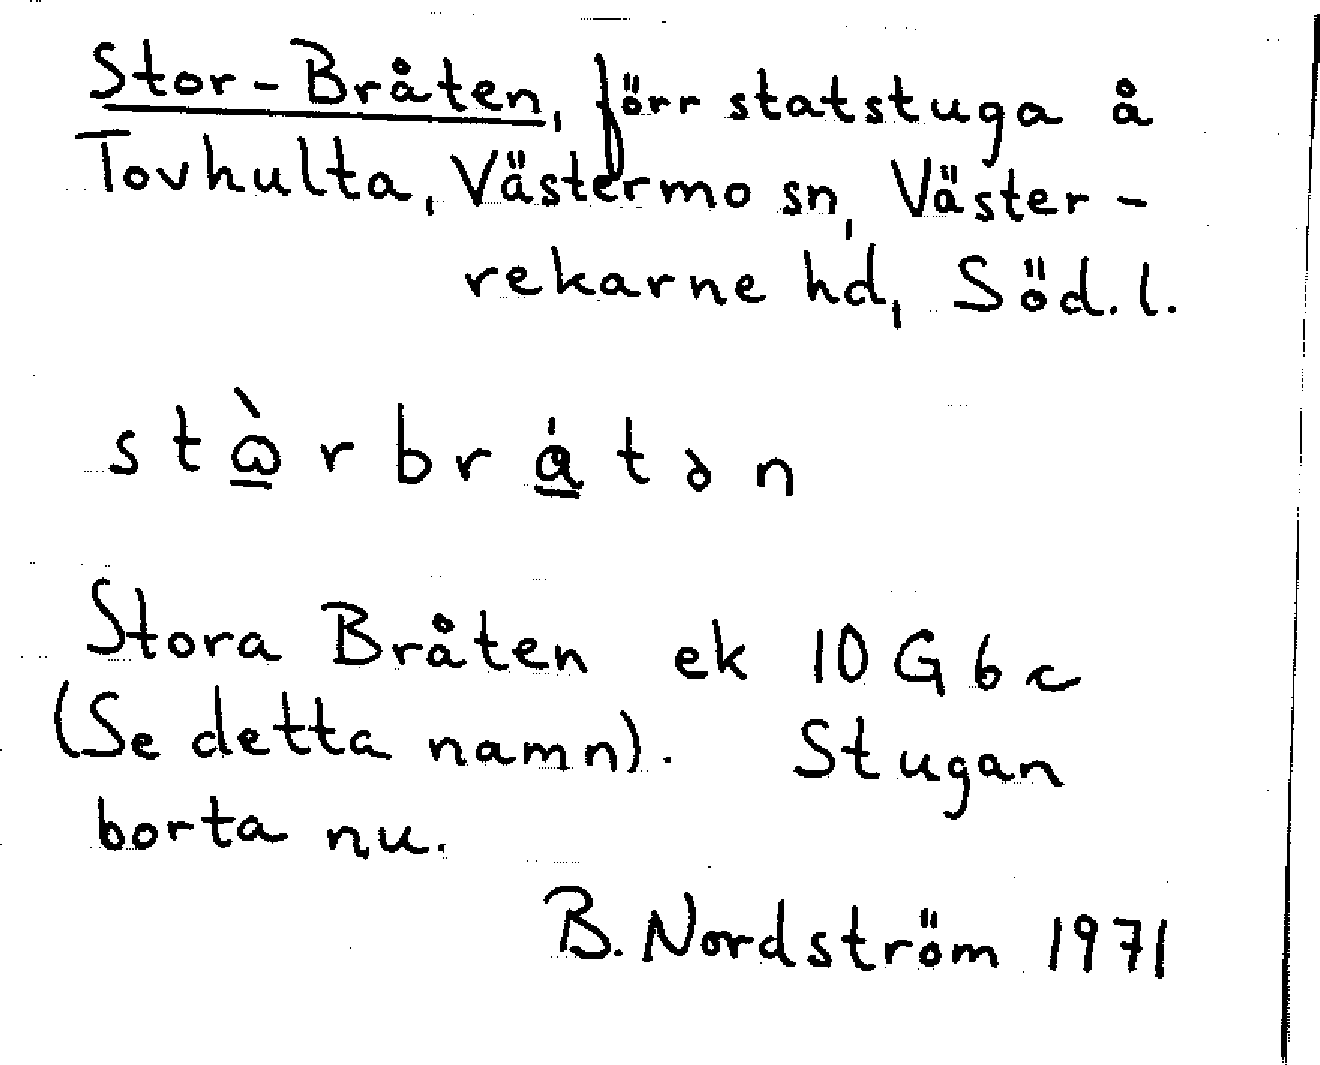 Stor-Bråten, förr statstuga å
Tovhulta, Västermo sn, Väster-
rekarne hd, Söd.l.
stὼ̲rbrá̲tən
Stora Bråten ek 10G6c
(Se detta namn). Stugan
borta nu.
B. Nordström 1971